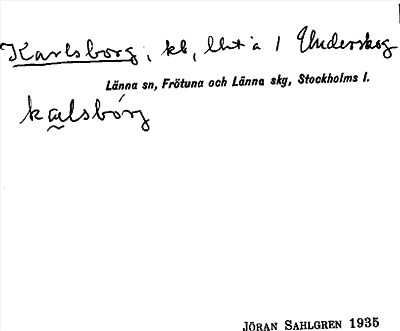 Karlsborg, kb, lht à 1 Underskog
Länna sn, Frötuna och Länna skg, Stockholms l.
kalsbórg
JÖRAN SAHLGREN 1935